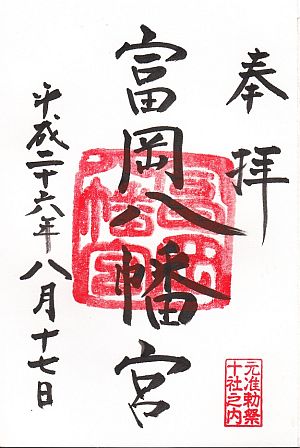 奉拝
富岡八幡宮
平成二十六年八月十七日
元准勅祭
十社之内